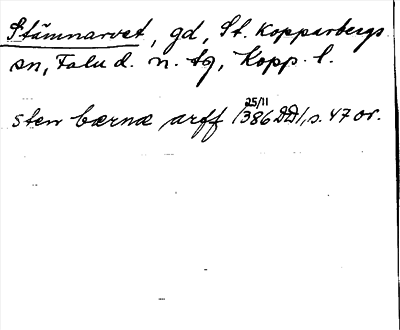 Stämnarvet, gd, St. Kopparbergs
sn, Falu d. n. tg, Kopp. l.
25/11
sten bærnæ arff 1386 DD1, s. 47 or.